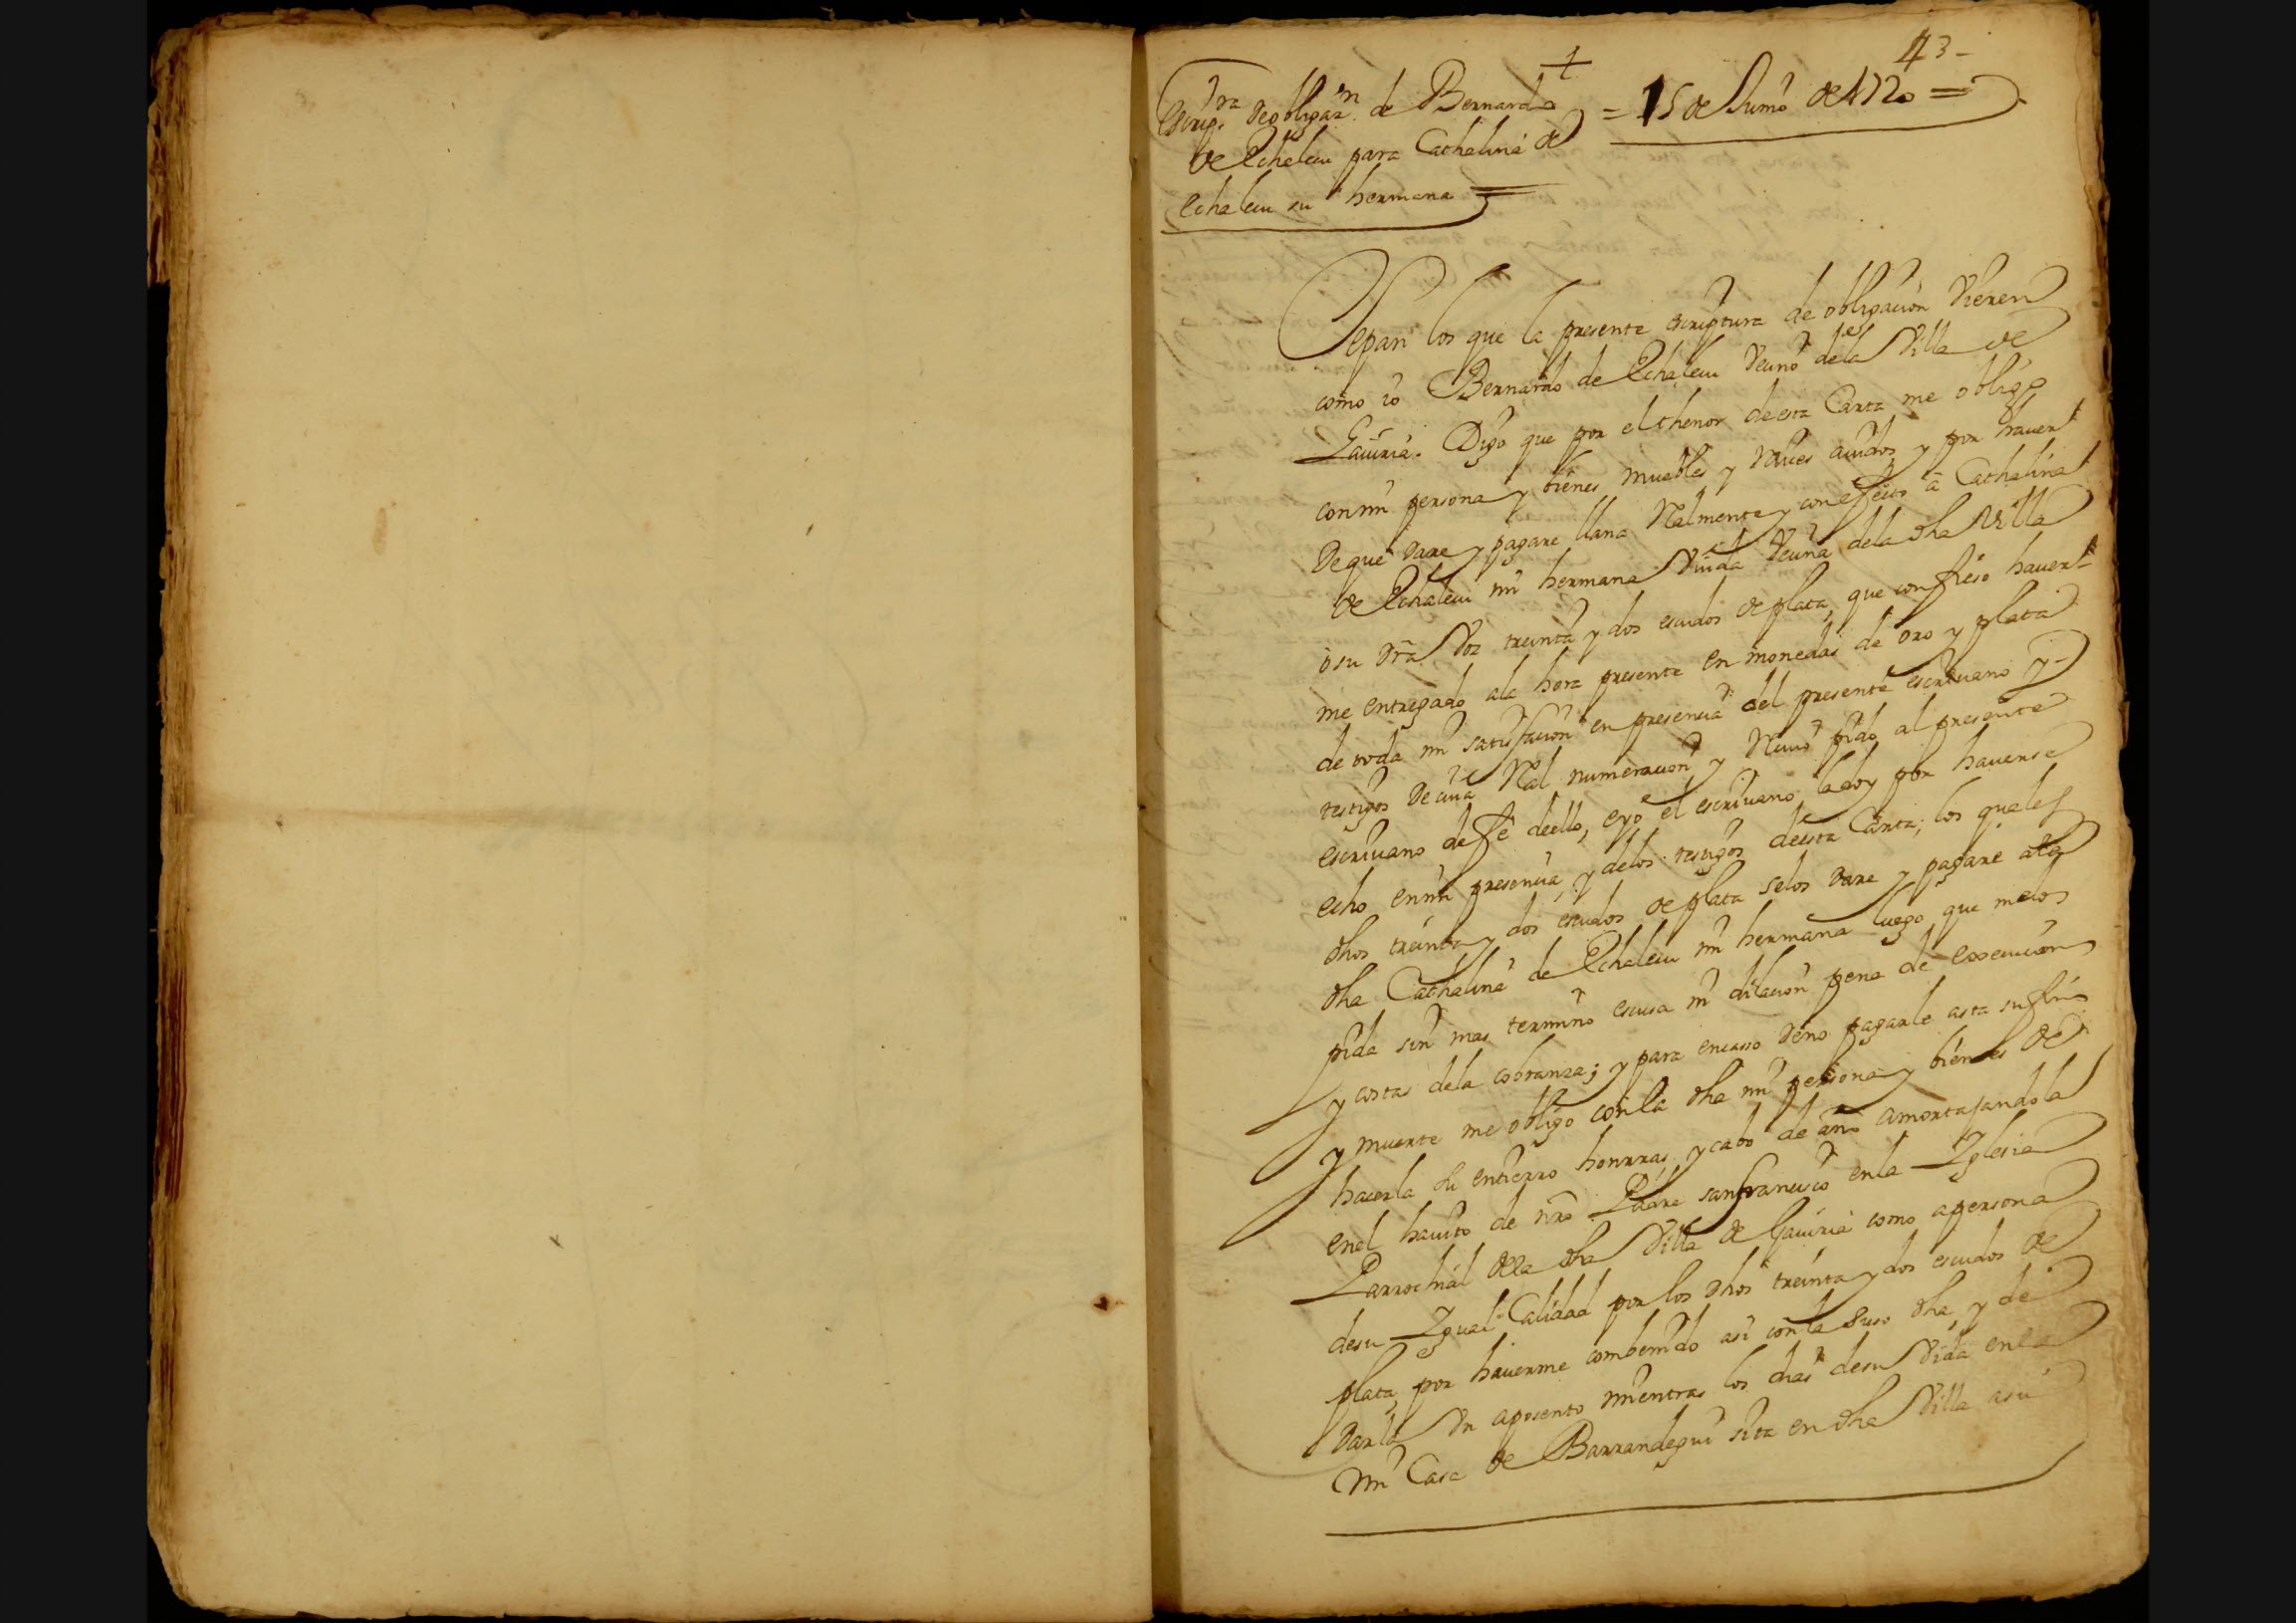 43-
+
Escrip.ra de obligaz.n de Bernardo = 15 de Junio de 1720 =
de Echaleou para Cathalina de
Echaleou su hermana =
Sepan los que la presente escriptura de obligacion vieren
como io Bernardo de Echaleou vecino de la Villa de
Gaviria. Digo que por el thenor de esta Carta me obligo
con mi persona y bienes muebles y raices avidos y por haver
de que dare y pagare llana realmente y con efecto â Cathalina
de Echaleou mi hermana viuda vecina dela dha Villa
ò su dra voz treinta y dos escudos de plata, que confieso haver-
me entregado ala hora presente en monedas de oro y plata
de toda mi satisfacion en presencia del presente escrivano y-
testigos de cuia Real numeracion y recivo pido al presente
escrivano de fê deello, e yo el escrivano la doy por haverse
echo en mi presencia, y delos testigos deesta Carta; los quales
dhos treinta y dos escudos de plata selos dare y pagare ala
dha Cathalina de Echaleou mi hermana luego que melos
pida sin mas termino escusa ni dilacion pena de execucion
y costas dela cobranza; y para encasso deno pagarle asta su fin
y muerte me obligo con la dha mi persona y bienes de
hacerla su entierro honrras, y cabo de año amortajandola
enel havito de nro Padre san francisco en la Iglesia
Parrochial dela dha Villa de Gaviria como apersona
desu Igual Calidad por los dhos treinta y dos escudos de
plata, por haverme combenido asi con la suso dha, y de
darla un aposento mientras los dias desu vida en la
mi Casa de Barrandegui sita en dha Villa asu